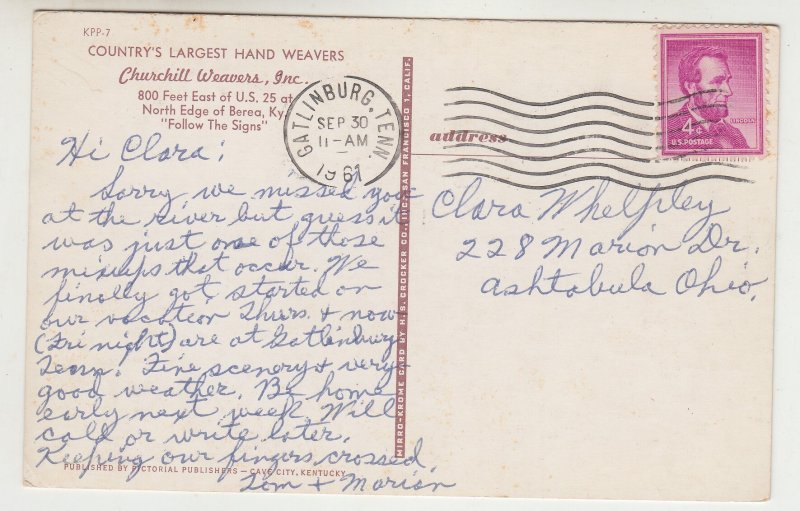 KPP-7
COUNTRY'S LARGEST HAND WEAVERS
Churchill Weavers, Inc.
800 Feet East of U.S. 25 at
North Edge of Berea, Ky.
"Follow The Signs"
GATLINBURG, TENN.
SEP 30
11-AM
1961
LINCOLN
4¢
U.S. POSTAGE
address
Hi Clara:
Sorry we missed you
at the river but guess it
was just one of those
mixups that occur. We
finally got started on
our vacation Thurs. & now
(Fri night) are at Gatlinburg
Tenn. Fine scenery & very
good weather. Be home
early next week. Will
call or write later.
Keeping our fingers crossed.
Tom + Marion
Clara Whelpley
228 Marion Dr.
Ashtabula Ohio.
MIRRO-KROME CARD BY H. S. CROCKER CO., INC., SAN FRANCISCO 1, CALIF.
PUBLISHED BY PICTORIAL PUBLISHERS — CAVE CITY, KENTUCKY